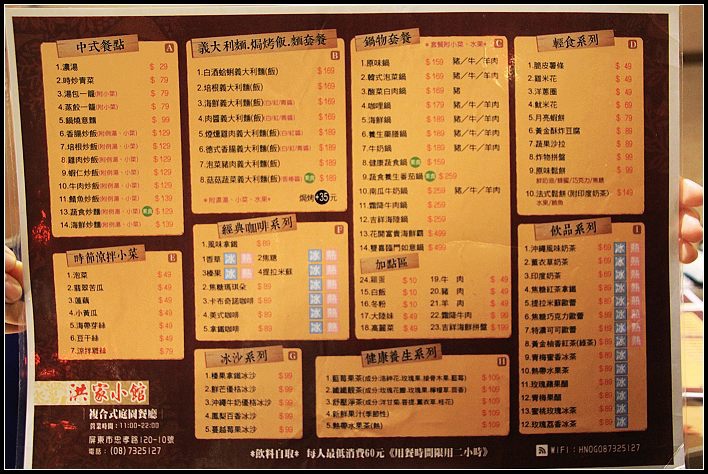 中式餐點 A
1.濃湯 $ 29
2.時炒青菜 $ 79
3.湯包一籠(附小菜) $ 79
4.蒸餃一籠(附小菜) $ 79
5.鍋燒意麵 $ 99
6.香腸炒飯(附例湯.小菜) $129
7.培根炒飯(附例湯.小菜) $139
8.雞肉炒飯(附例湯.小菜) $139
9.蝦仁炒飯(附例湯.小菜) $139
10.牛肉炒飯(附例湯.小菜) $139
11.鯖魚炒飯(附例湯.小菜) $139
13.蔬食炒麵(附例湯.小菜) $129
14.海鮮炒麵(附例湯.小菜) $139
義大利麵.焗烤飯.麵套餐 B
1.白酒蛤蜊義大利麵(飯) $169
2.培根義大利麵(飯) $169
3.海鮮義大利麵(飯)(白/紅/青醬) $169
4.肉醬義大利麵(飯)(白/紅/青醬) $169
5.煙燻雞肉義大利麵(飯)(白/紅/青醬) $189
6.德式香腸義大利麵(飯)(白/紅/青醬) $189
7.泡菜豬肉義大利麵(飯) $189
8.菇菇蔬菜義大利麵(飯) $189
*附濃湯、小菜、水果*
焗烤+35元
鍋物套餐 C
*套餐附小菜、水果*
1.原味鍋 $159 豬/牛/羊肉
2.韓式泡菜鍋 $169 豬/牛/羊肉
3.酸菜白肉鍋 $169 豬
4.咖哩鍋 $179 豬/牛/羊肉
5.海鮮鍋 $189
6.養生藥膳鍋 $189 豬/牛/羊肉
7.牛奶鍋 $189 豬/牛/羊肉
8.健康蔬食鍋 $159
9.蔬食養生番茄鍋 $169
10.南瓜牛奶鍋 $219 豬/牛/羊肉
11.霜降牛肉鍋 $259
12.吉祥海陸鍋 $259
13.花開富貴海鮮鍋 $499
14.雙喜臨門如意鍋 $499
輕食系列 D
1.脆皮薯條 $ 49
2.雞米花 $ 49
3.洋蔥圈 $ 49
4.魷米花 $ 69
5.月亮蝦餅 $ 79
6.黃金酥炸豆腐 $ 89
7.蔬果沙拉 $ 89
8.炸物拼盤 $ 99
9.原味鬆餅 $ 99
鮮奶油/蜂蜜/巧克力/焦糖
10.法式鬆餅(附印度奶茶) $149
水果/鮪魚
時節涼拌小菜 E
1.泡菜 $ 49
2.翡翠苦瓜 $ 49
3.蓮藕 $ 49
4.小黃瓜 $ 49
5.海帶芽絲 $ 49
6.豆干絲 $ 49
7.涼拌雞絲 $ 79
經典咖啡系列 F
1.風味拿鐵 $89
1香草 冰 熱 2焦糖 冰 熱
3榛果 冰 熱 4提拉米蘇 冰 熱
2.焦糖瑪琪朵 $ 89 冰 熱
3.卡布奇諾咖啡 $ 89 冰 熱
4.美式咖啡 $ 89 冰 熱
5.拿鐵咖啡 $ 89 冰 熱
加點區
24.雞蛋 $10
15.白飯 $10
16.冬粉 $10
17.大陸妹 $50
18.高麗菜 $50
19.牛 肉 $50
20.豬 肉 $50
21.羊 肉 $50
22.霜降牛肉 $99
23.吉祥海鮮拼盤 $199
飲品系列 I
1.沖繩風味奶茶 $69 冰 熱
2.薰衣草奶茶 $69 冰 熱
3.印度奶茶 $69 冰 熱
4.焦糖紅茶拿鐵 $69 冰 熱
5.提拉米蘇歐蕾 $69 冰 熱
6.焦糖巧克力歐蕾 $69 冰 熱
7.特濃可可歐蕾 $69 冰 熱
8.黃金柚香紅茶(綠茶) $69 冰 熱
9.青梅蜜香冰茶 $69 冰
10.熱帶水果茶 $69 冰
11.玫瑰蘋果醋 $69 冰
12.青梅果醋 $69 冰
13.蜜桃玫瑰冰茶 $69 冰
12.玫瑰荔香冰茶 $69 冰
冰沙系列 G
1.榛果拿鐵冰沙 $ 99
2.鮮芒優格冰沙 $ 99
3.沖繩牛奶優格冰沙 $ 99
4.鳳梨百香冰沙 $ 99
5.蔓越莓果冰沙 $ 99
健康養生系列 H
1.藍莓果茶 $109
4.新鮮果汁(季節性) $109
5.熱帶水果茶(熱) $109
洪家小館
複合式庭園餐廳
營業時間:11:00-22:00
屏東市忠孝路120-10號
電話:(08)7325127
*飲料自取* 每人最低消費60元《用餐時間限用二小時》
WIFI:HNOG087325127